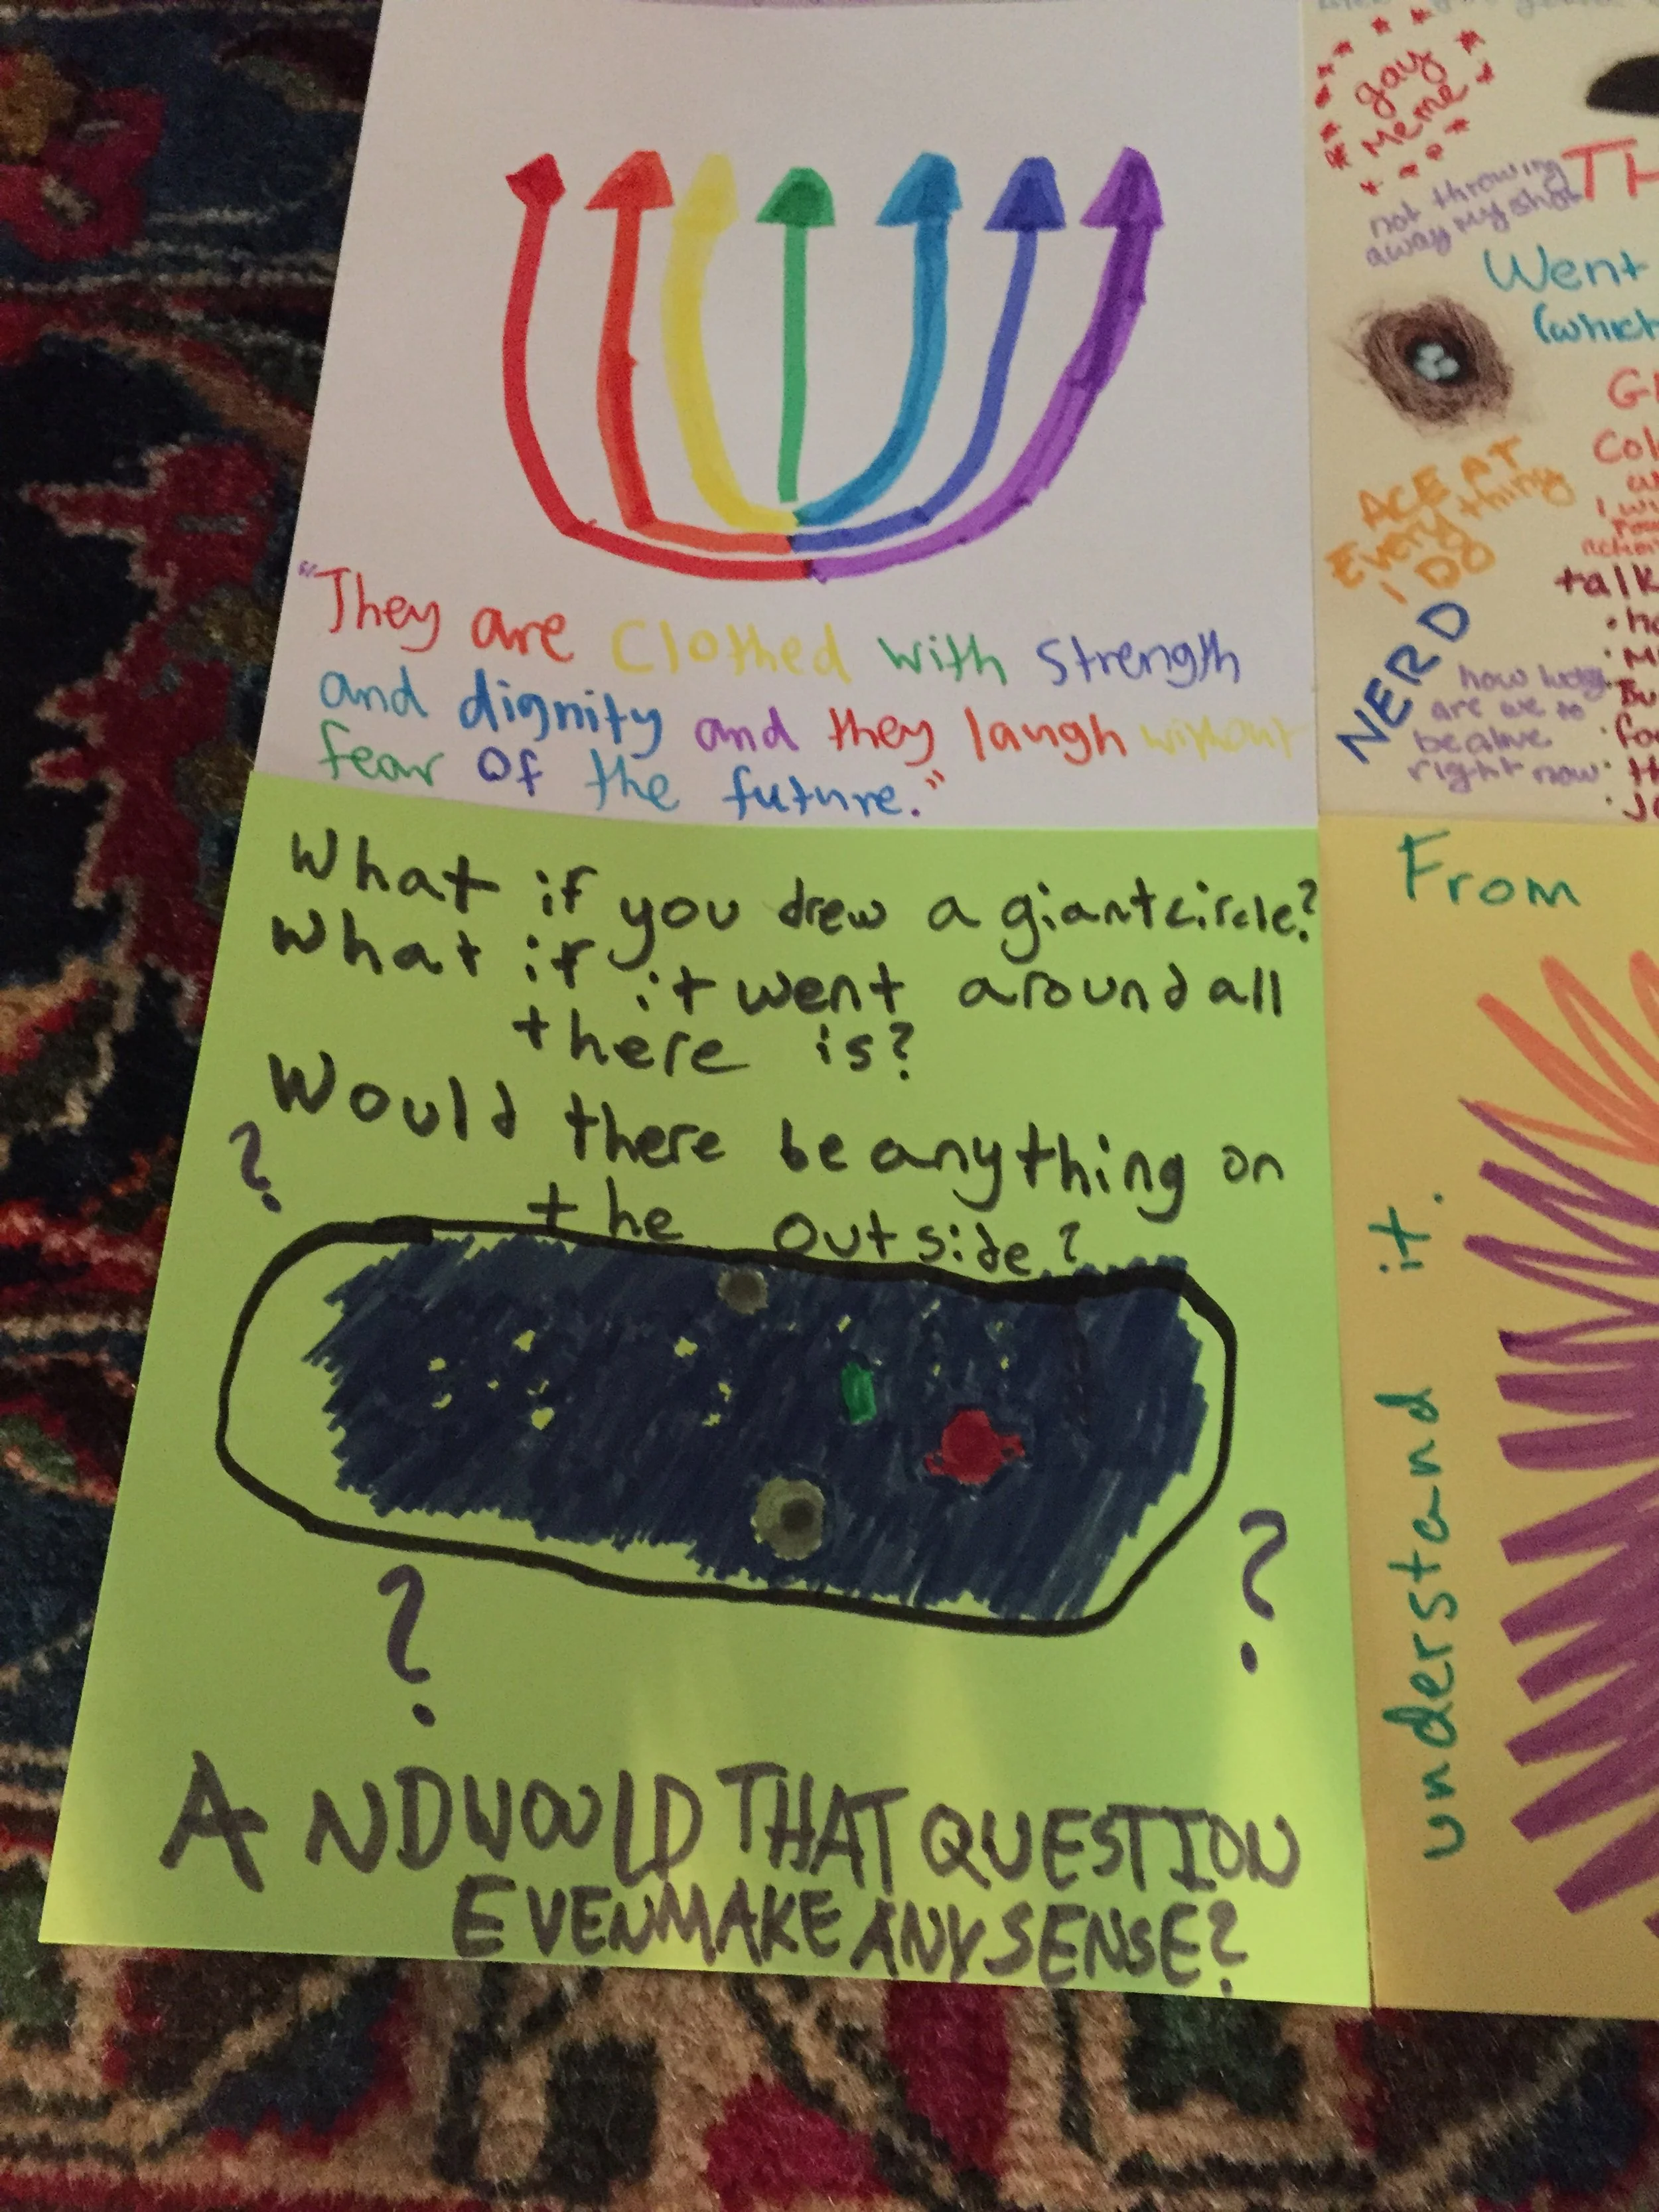 "They are Clothed with Strength
and dignity and they laugh without
fear of the future."
What if you drew a giant circle?
What if it went around all
there is?
Would there be anything on
the outside?
?
?
?
AND WOULD THAT QUESTION
EVEN MAKE ANY SENSE?
gay
Meme
not throwing
away my shot
TH
Went
(which
ACE AT
Everything
I DO
NERD
how lucky
are we to
be alive
right now
G
Col
I wi
talk
From
understand it.